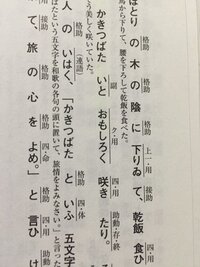 格助 格助 上一・用 接助 四・用
ほとりの木の陰に下りゐて、乾飯食ひ
馬から下りて、腰を下ろして乾飯を食べた。
副 ク・用 四・用 助動・存・終
かきつばたいとおもしろく咲きたり。
う美しく咲いていた。
格助 (連語) 格助 四・体
人のいはく、「かきつばたといふ五文字
ばたという五文字を和歌の各句の頭に置いて、旅情をよみなさい。」と言った
用 接助 格助 格助 四・命 格助 四・用 助動
て、旅の心をよめ。」と言ひけ